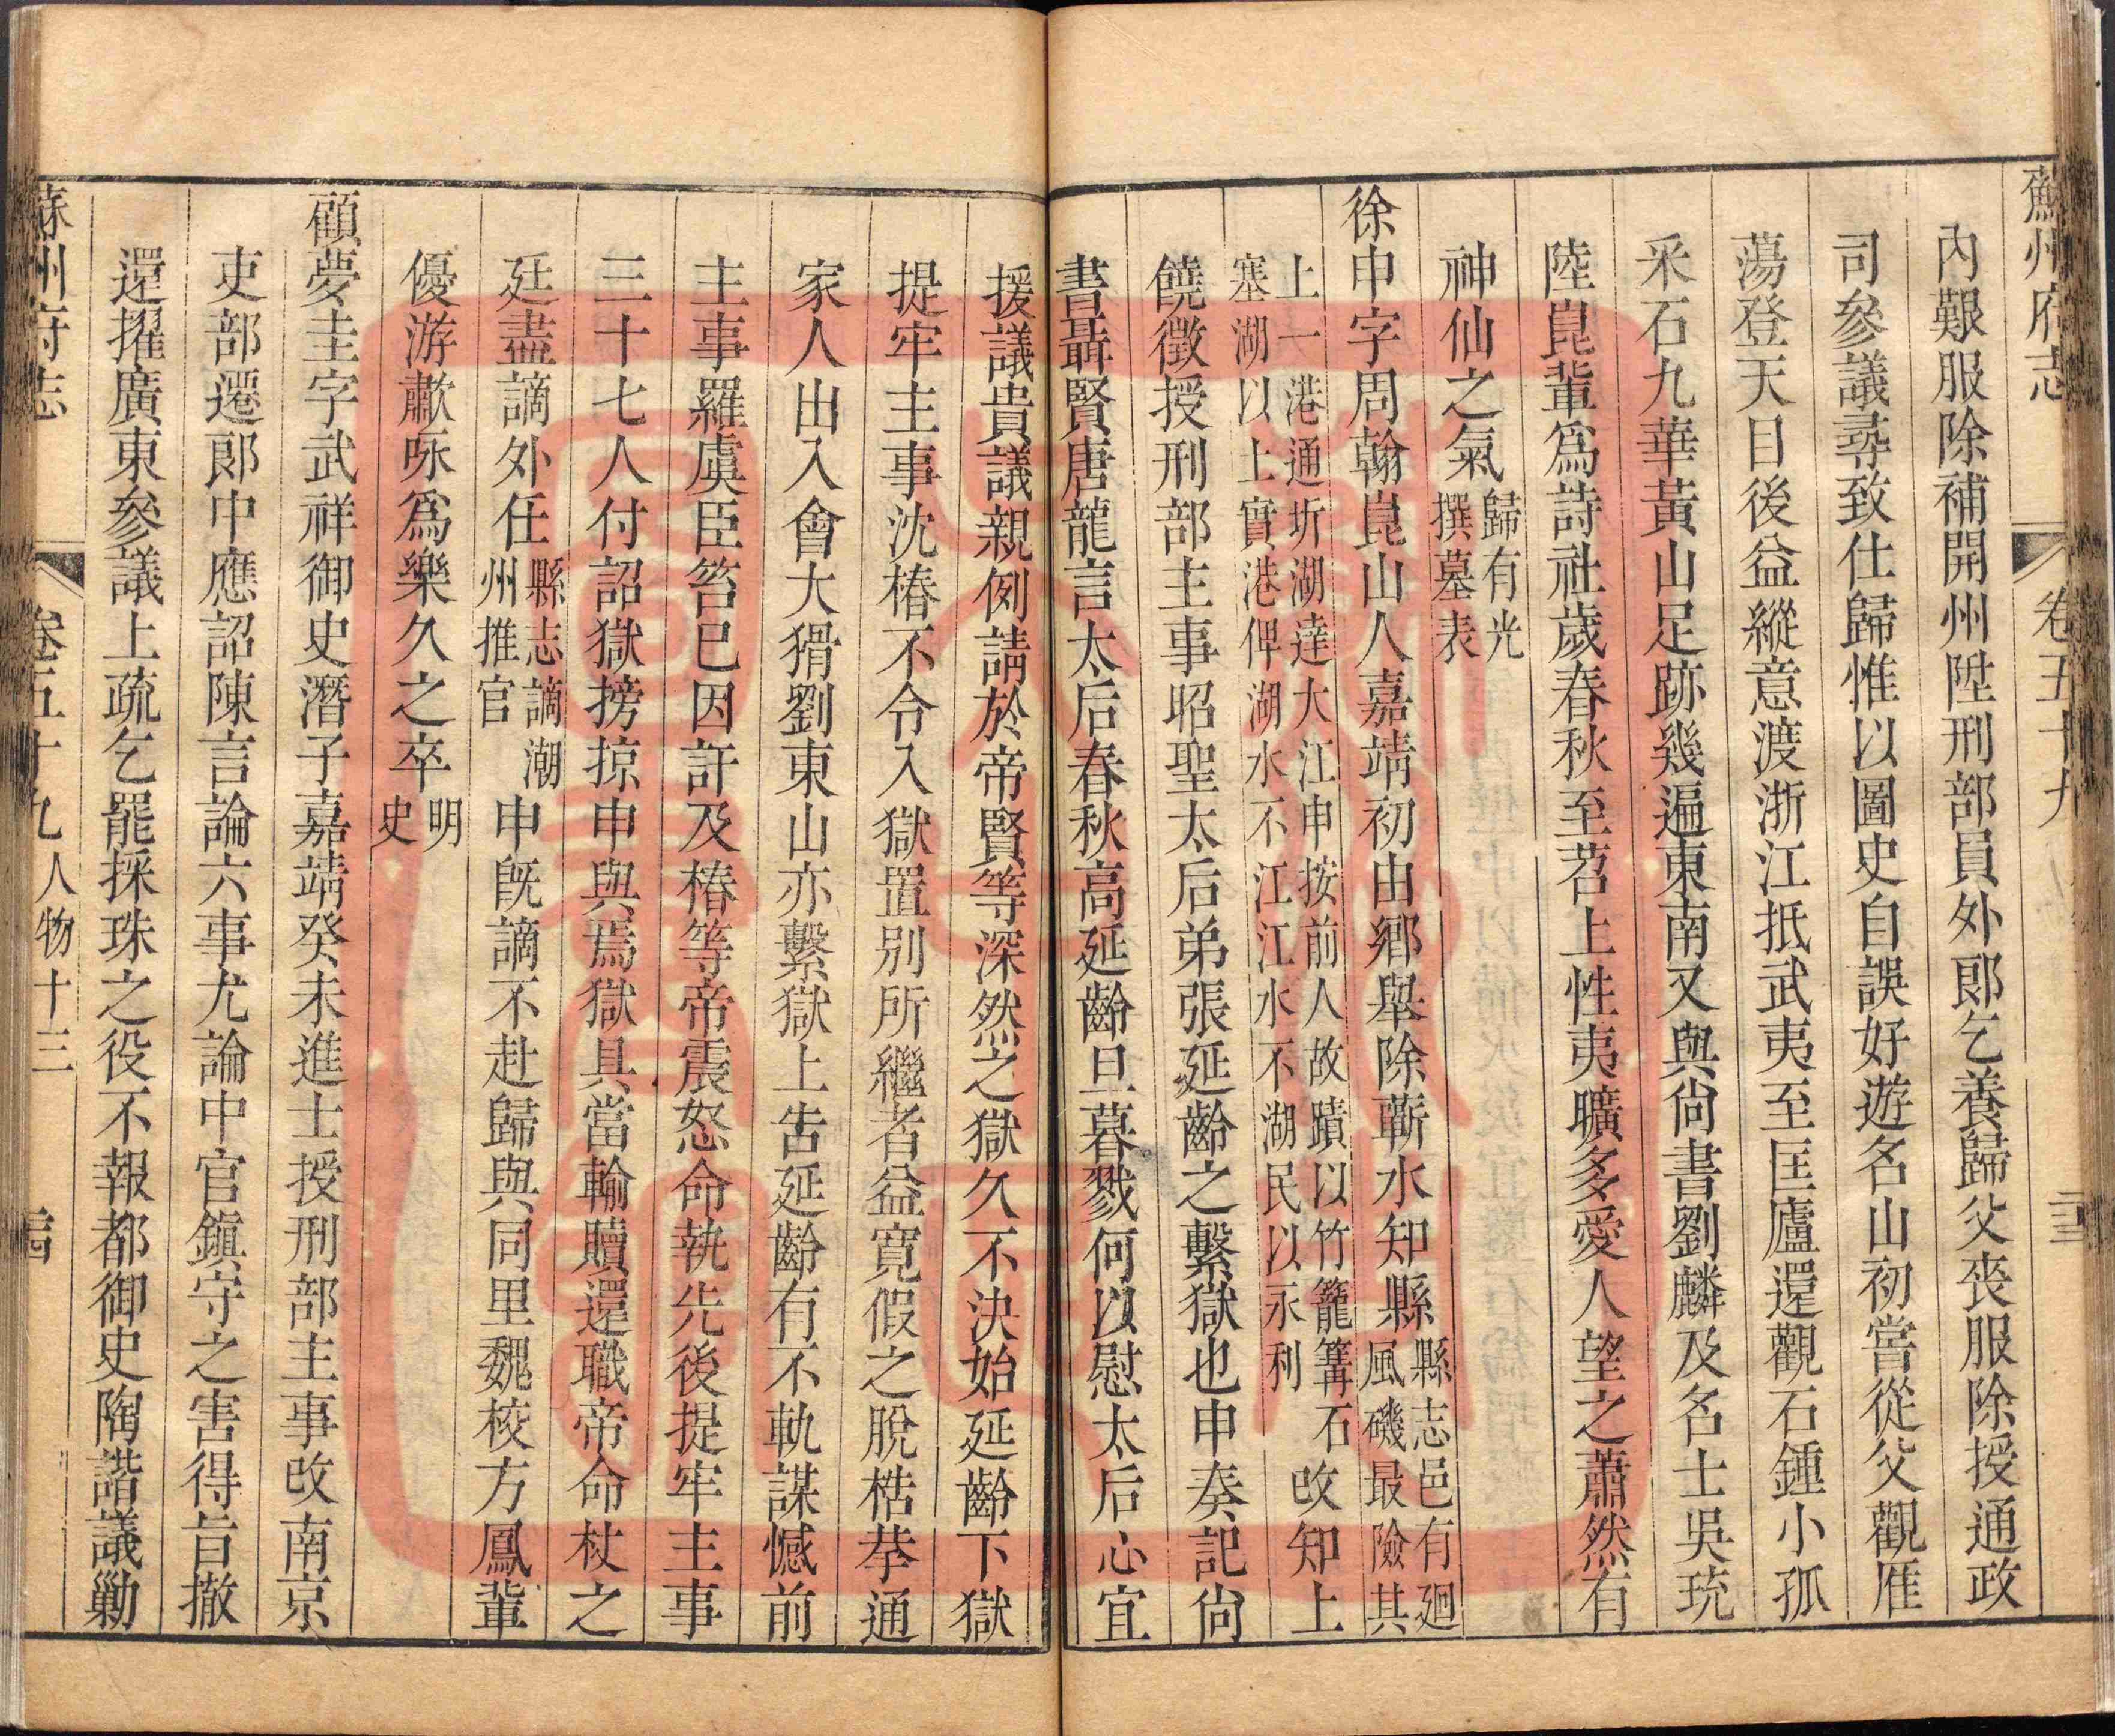 蘇州府志 卷五十九
內艱服除補開州陞刑部員外郎乞養歸父丧服除授通政
司參議尋致仕歸惟以圖史自誤好遊名山初嘗從父觀雁
蕩登天目後益縱意渡浙江抵武夷至匡廬還觀石鍾小孤
采石九華黃山足跡幾遍東南又與尙書劉麟及名士吳珫
陸崑輩爲詩社歲春秋至苕上性夷曠多愛人望之蕭然有
神仙之氣歸有光撰墓表
徐申字周翰崑山人嘉靖初由鄉舉除蘄水知縣縣志邑有廻風磯最險其
上一港通圻湖達大江申按前人故蹟以竹籠篝石塞湖以上實港俾湖水不江江水不湖民以永利改知上
饒徵授刑部主事昭聖太后弟張延齡之繫獄也申奏記尙
書聶賢唐龍言太后春秋高延齡旦暮戮何以慰太后心宜
援議貴議親例請於帝賢等深然之獄久不決始延齡下獄
提牢主事沈椿不令入獄置别所繼者益寬假之脫梏拲通
家人出入會大猾劉東山亦繫獄上吿延齡有不軌謀憾前
主事羅虞臣笞已因訐及椿等帝震怒命執先後提牢主事
三十七人付詔獄搒掠申與焉獄具當輸贖還職帝命杖之
廷盡謫外任縣志謫潮州推官申旣謫不赴歸與同里魏校方鳳輩
優游歗咏爲樂久之卒明史
顧夢圭字武祥御史潛子嘉靖癸未進士授刑部主事改南京
吏部遷郎中應詔陳言論六事尤論中官鎮守之害得旨撤
還擢廣東參議上疏乞罷採珠之役不報都御史陶諧議勦
蘇州府志 卷五十九 人物十三